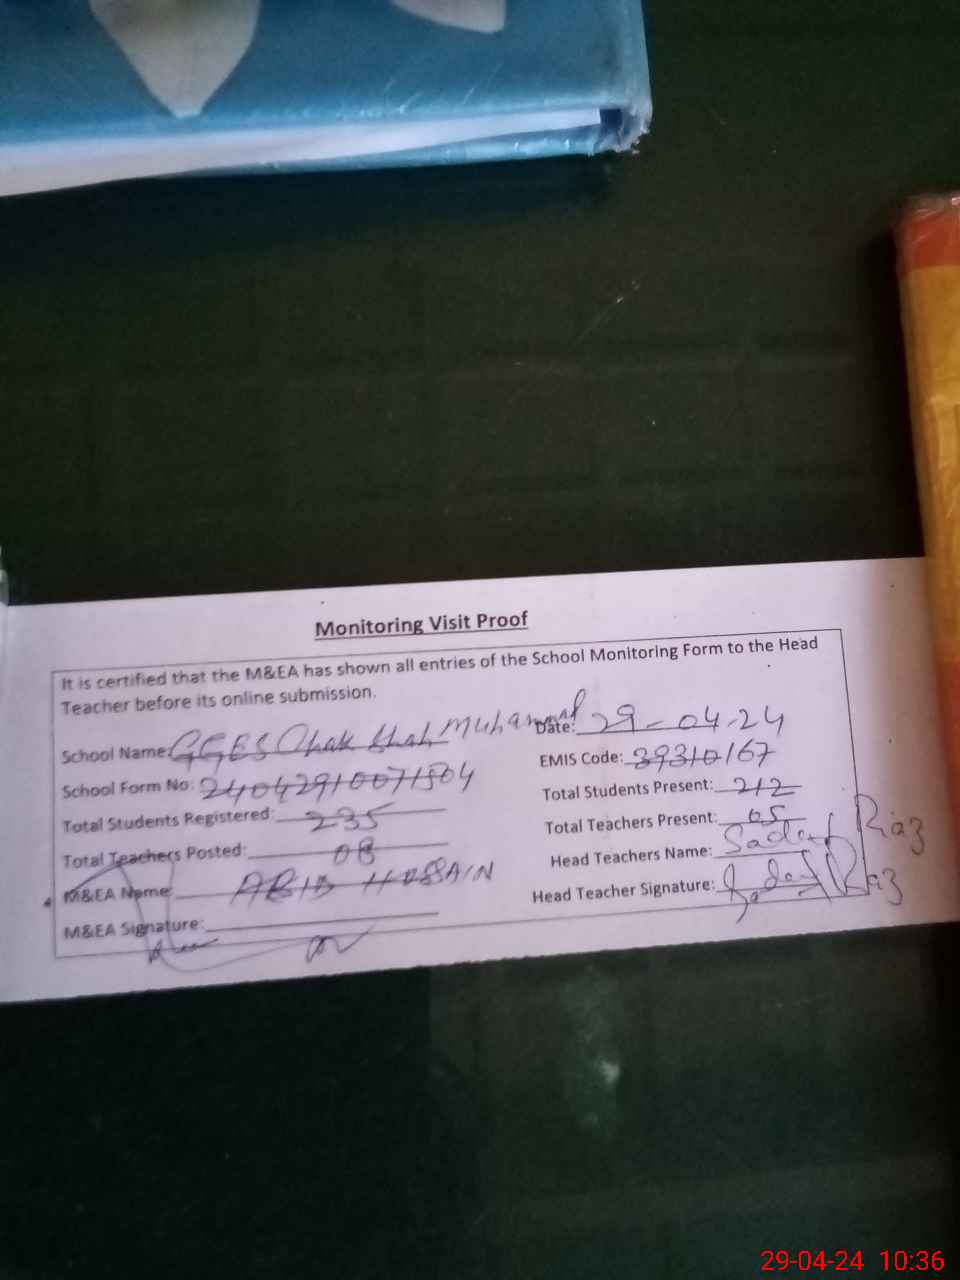 Monitoring Visit Proof
It is certified that the M&EA has shown all entries of the School Monitoring Form to the Head
Teacher before its online submission.
School Name: GGES Chak Shah Muhammad
Date: 29-04-24
School Form No: 24042910071504
EMIS Code: 39310167
Total Students Registered: 235
Total Students Present: 212
Total Teachers Posted: 08
Total Teachers Present: 05
M&EA Name ABID HUSSAIN
Head Teachers Name: Sadaf Riaz
M&EA Signature:
Head Teacher Signature: Sadaf Riaz
29-04-24 10:36